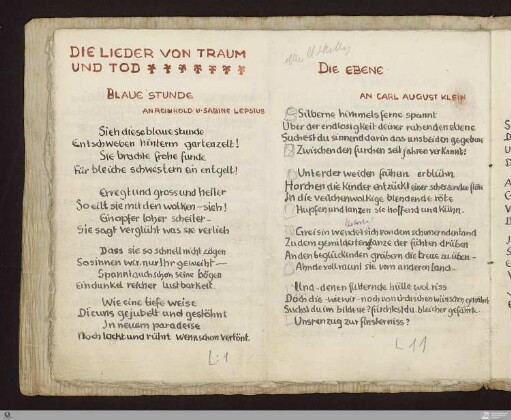 DIE LIEDER VON TRAUM
UND TOD
BLAUE STUNDE
AN REINHOLD U. SABINE LEPSIUS
Sieh diese blaue stunde
Entschweben hinterm gartenzelt!
Sie brachte frohe funde
Für bleiche schwestern ein entgelt!
Erregt und gross und heller
So eilt sie mit den wolken – sieh!
Ein opfer loher scheiter –
Sie sagt verglüht was sie verlieh
Dass sie so schnell nicht zögen
So sinnen wir, nur ihr geweiht –
Spannt auch schon seine bögen
Ein dunkel reicher lustbarkeit.
Wie eine tiefe weise
Die uns gejubelt und gestöhnt
In neuem paradeise
Noch lockt und rührt wenn schon vertönt.
L:1
DIE EBENE
AN CARL AUGUST KLEIN
Silberne himmelsferne spannt
Über der endlosigkeit deiner ruhenden ebene
Suchest du sinnend darin das uns beiden gegebene
Zwischen den furchen seit jahren verkannte!
Unter der weiden frühen erblühn
Horchen die kinder entzückt einer scherzenden flöte
In die veilchenwolkige blendende röte
Hüpfen und tanzen sie hoffend und kühn.
Greisin wendet sich von dem schmerzenden land
Zu dem gemilderten glanze der fichten drüben
An den beglückenden gräbern die treue zu üben –
Ahndevoll raunt sie vom anderen land –
Und – denen flitternde hülle wol riss
Doch die – wie wir – noch von irdischen wünschen genährt
Suchst du im bild uns? fürchtest du, bleicher gefährte,
Unsren zug zur finsterniss?
L 11